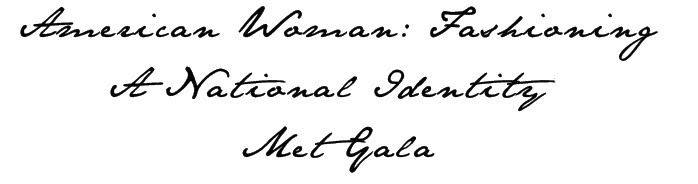 American Woman: Fashioning
A National Identity
Met Gala